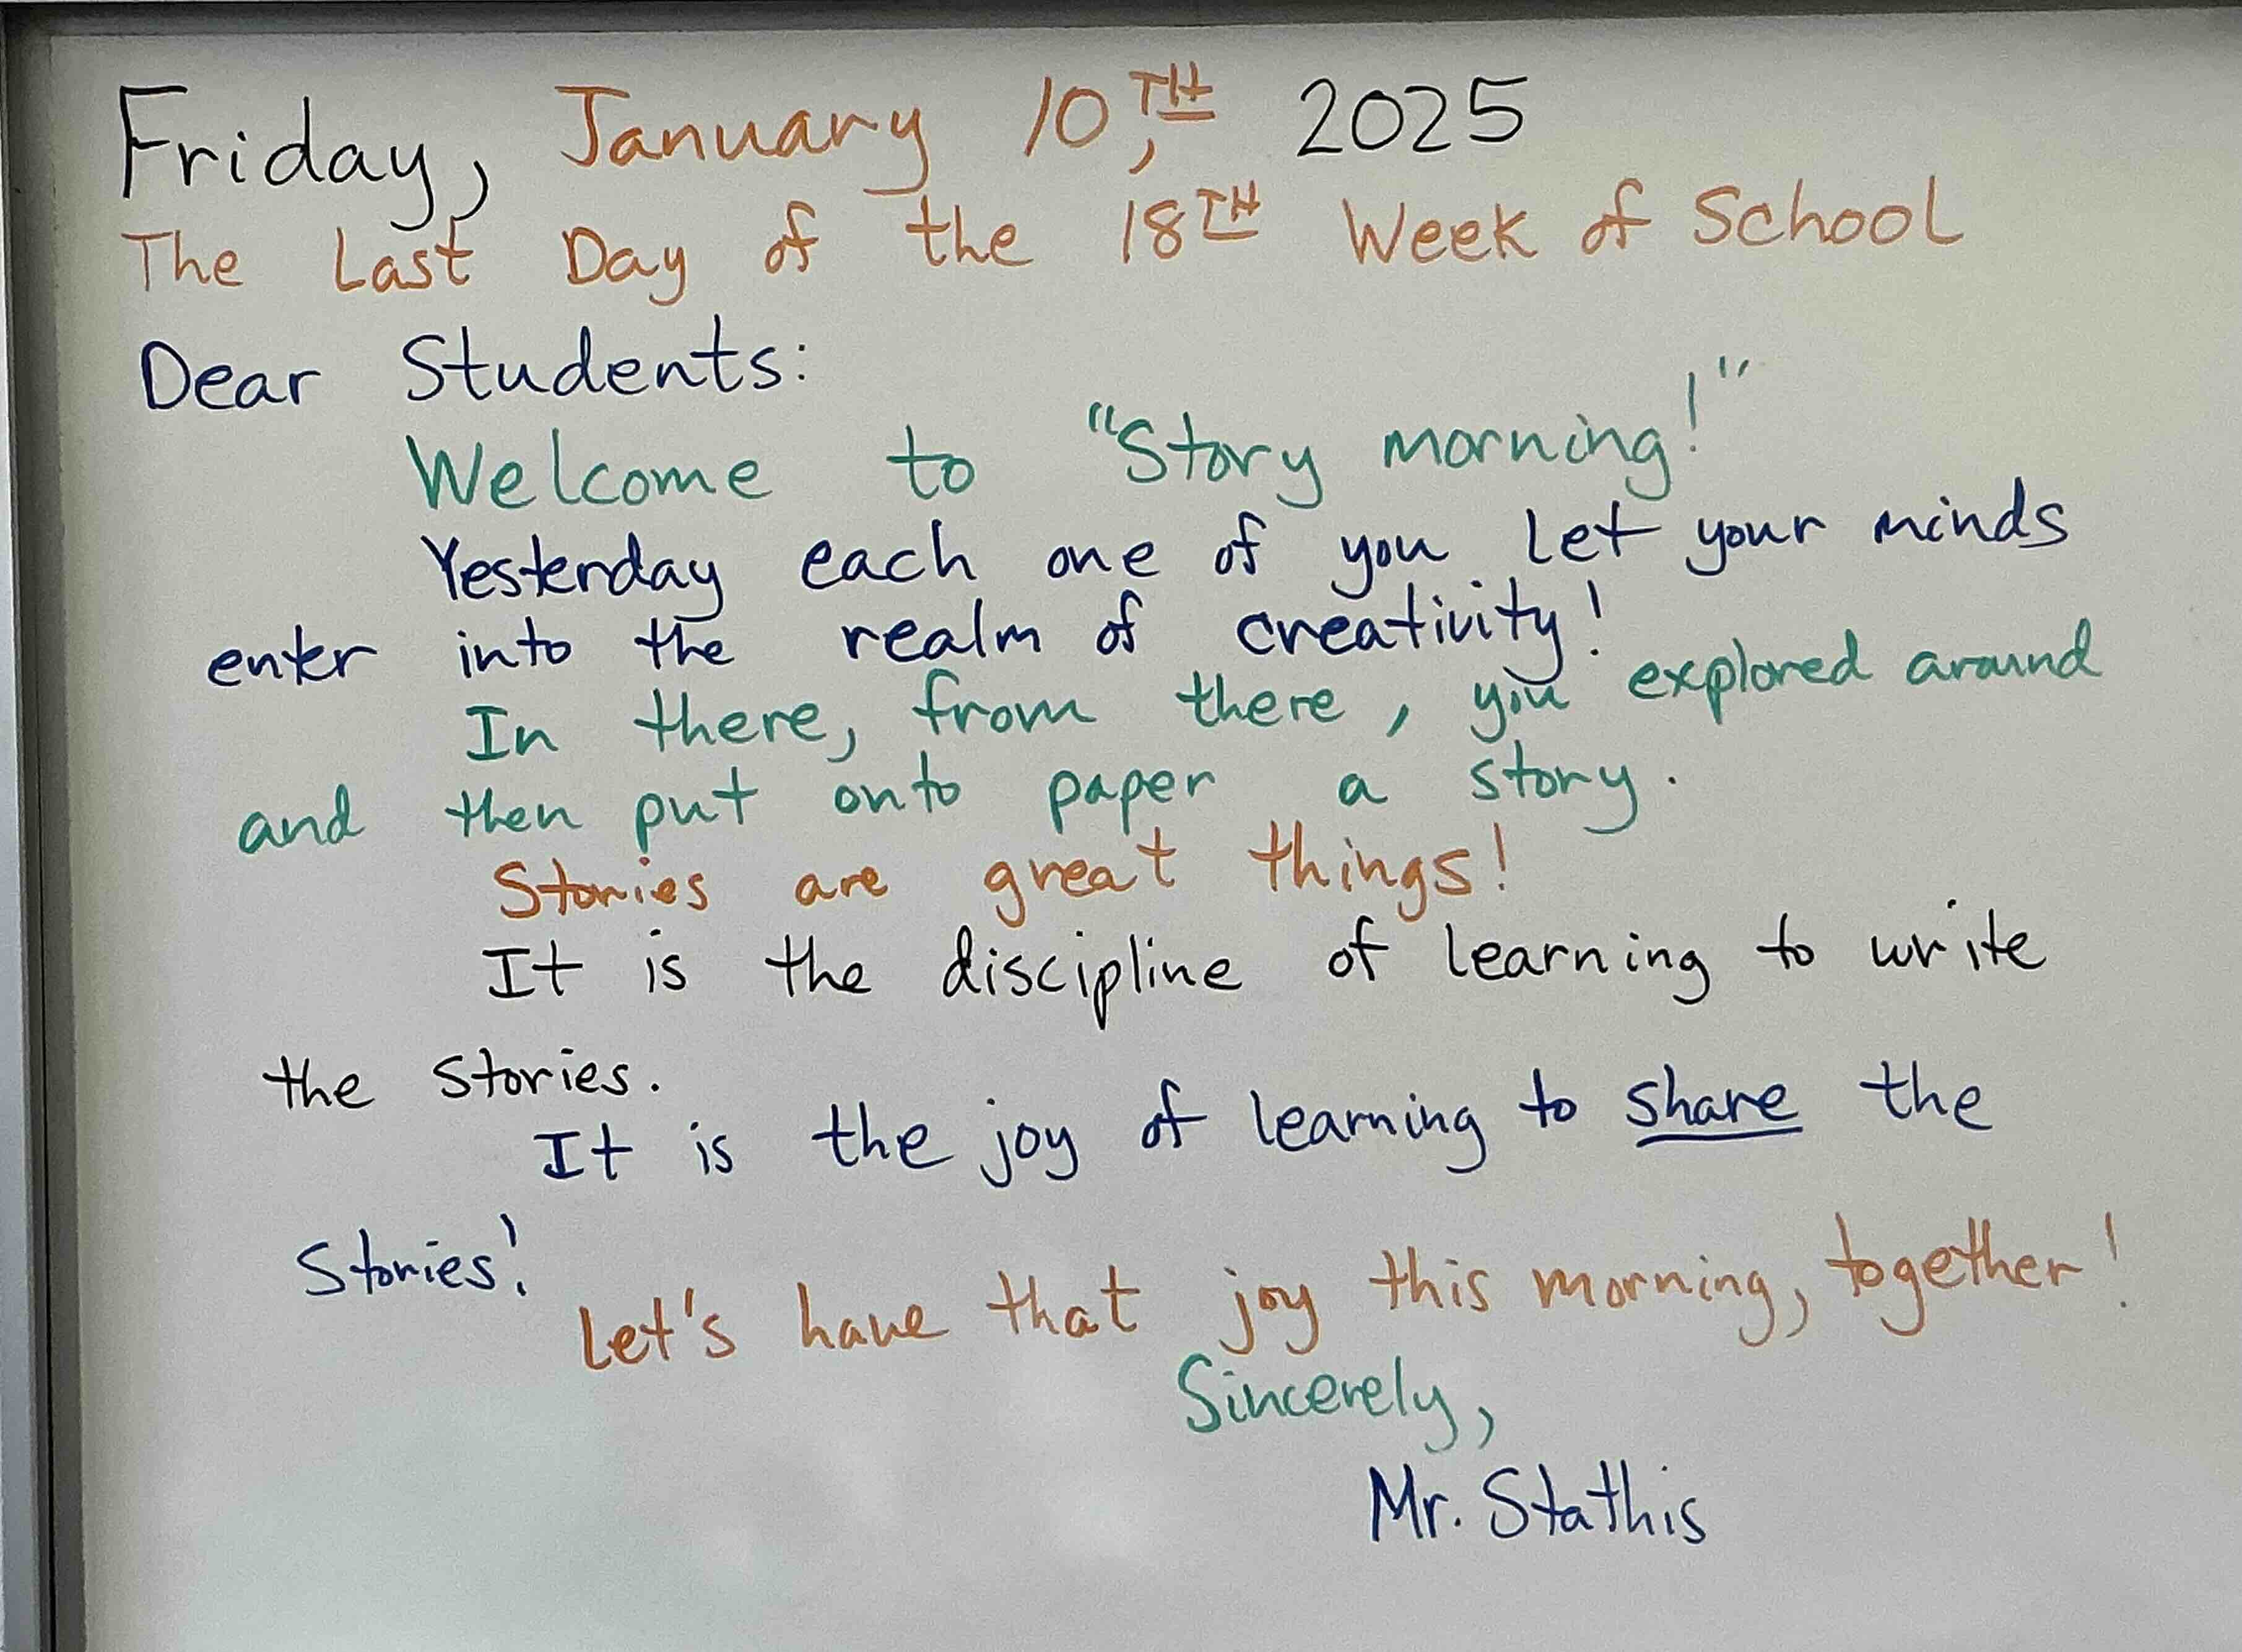 Friday, January 10TH, 2025
The Last Day of the 18TH Week of School
Dear Students:
Welcome to "Story morning!"
Yesterday each one of you let your minds
enter into the realm of creativity!
In there, from there, you explored around
and then put onto paper a story.
Stories are great things!
It is the discipline of learning to write
the stories.
It is the joy of learning to share the
Stories!
Let's have that joy this morning, together!
Sincerely,
Mr. Stathis